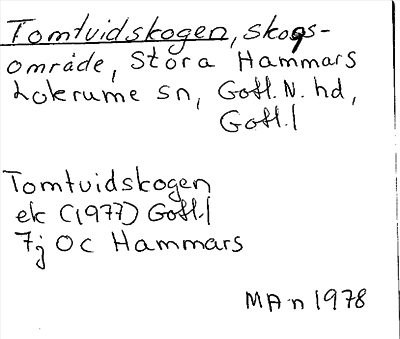 Tomtvidskogen, skogs-
område, Stora Hammars
Lokrume sn, Gotl. N. hd,
Gotl. l
Tomtvidskogen
ek (1977) Gotl. l
7j Oc Hammars
MA-n 1978